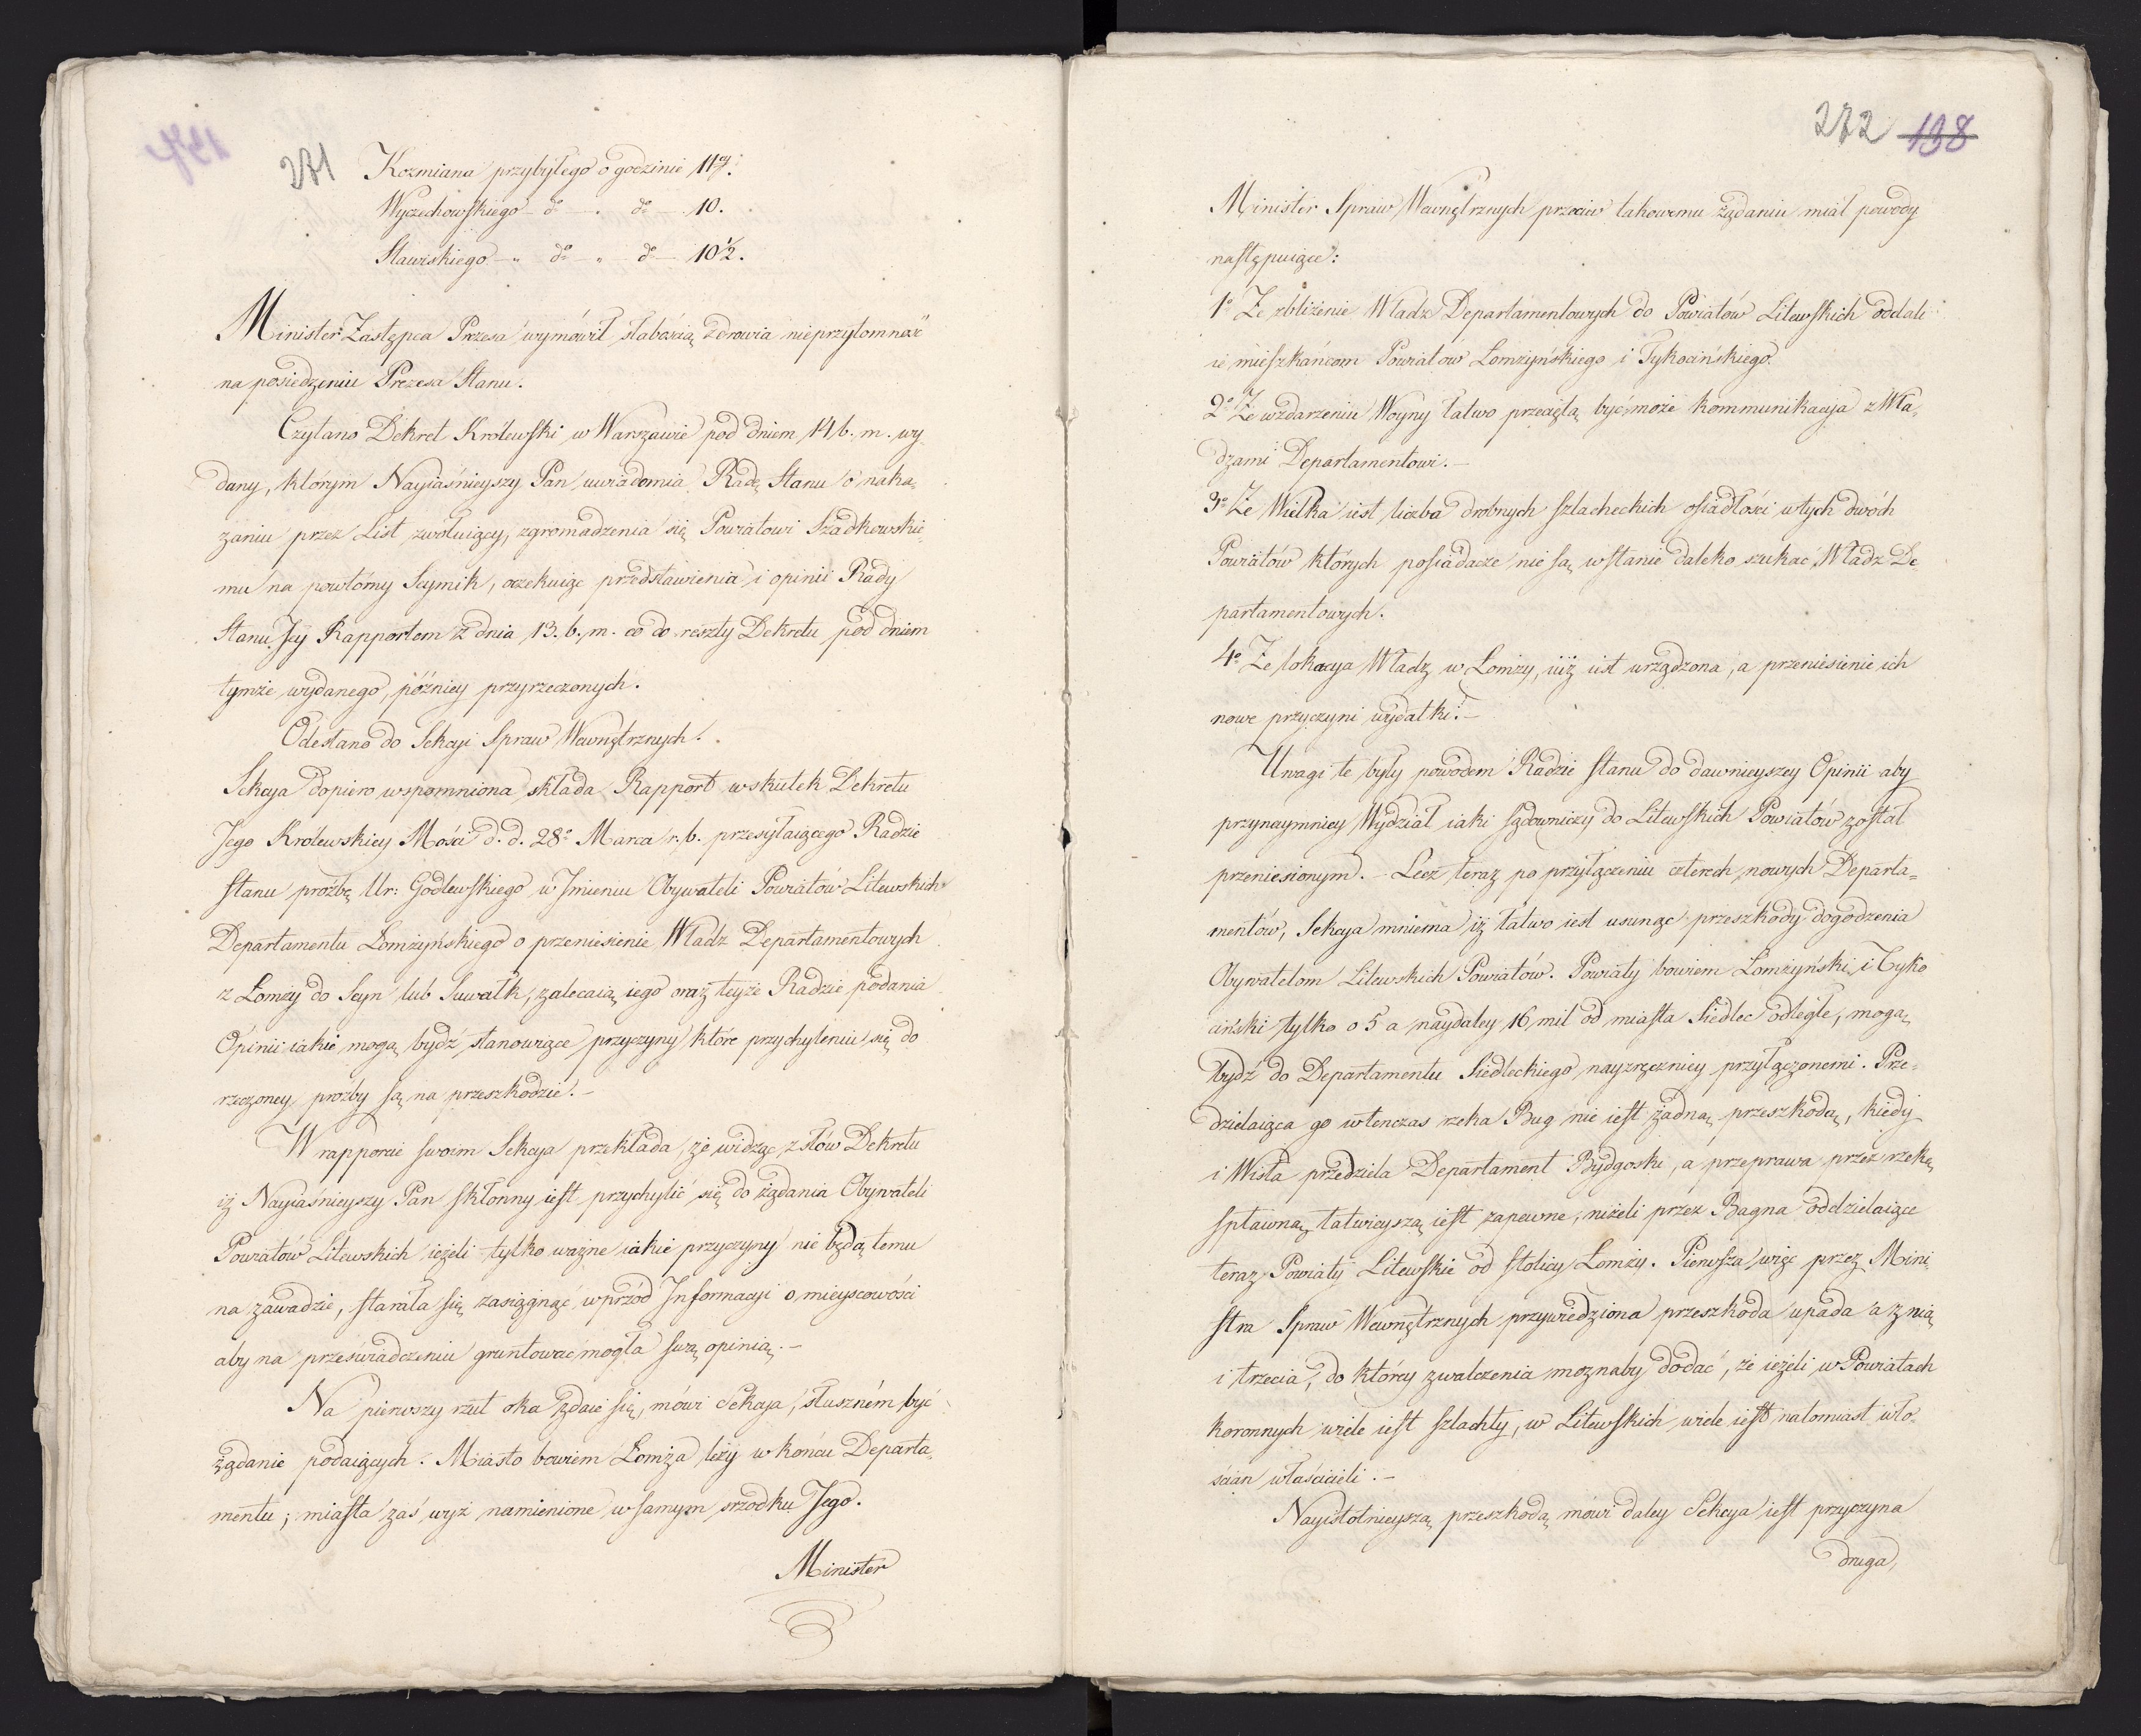 271
Kozmiana przybyłego o godzinie 11ey.
Wyczechowskiego – do – . do – 10.
Sławiskiego – „ do – „ do – 10 1/2.
Minister Zastępca Prezesa wymówił słabością zdrowia nieprzytomność
na posiedzeniu Prezesa Stanu.
Czytano Dekret Królewski w Warszawie pod dniem 14 b. m. wy
dany, którym Nayiaśnieyszy Pan uwiadomia Radę Stanu o naka„
zaniu przez List zwołuiący, zgromadzenia się Powiatowi Szadkowskie„
mu na powtórny Seymik, oczekuiąc przedstawienia i opinii Rady
Stanu Jey Rapportem z dnia 13. b. m. co do reszty Dekretu pod dniem
tymże wydanego, późniey przyrzeczonych.
Odesłano do Sekcyi Spraw Wewnętrznych.
Sekcya dopiero wspomniona składa Rapport w skutek Dekretu
Jego Królewskiey Mości d. d. 28o Marca r. b. przesyłaiącego Radzie
Stanu proźbę Ur: Godlewskiego w Imieniu Obywateli Powiatów Litewskich
Departamentu Łomżyńskiego o przeniesienie Władz Departamentowych
z Łomży do Seyn lub Suwałk, zalecaią iego oraz teyże Radzie podania
Opinii iakie mogą bydź stanowiące przyczyny które przychyleniu się do
rzeczoney proźby są na przeszkodzie. –
W rapporcie swoim Sekcya przekłada, że widząc z słów Dekretu
iż Nayiaśnieyszy Pan skłonny iest przychylić się do żądania Obywateli
Powiatów Litewskich ieżeli tylko ważne iakie przyczyny nie będą temu
na zawadzie, starała się zasiągnąć wprzód Informacyi o mieyscowości
aby na przeswiadczeniu gruntować mogła swą opinią. –
Na pierwszy rzut oka zdaie się, mówi Sekcya, słuszném być
żądanie podaiących. Miasto bowiem Łomża leży w końcu Departa„
mentu; miasta zaś wyż namienione w samym srzodku Jego.
Minister
272 198
Minister Spraw Wewnętrznych przeciw takowemu żądaniu miał powody
następuiące:
1o Że zbliżenie Władz Departamentowych do Powiatów Litewskich oddali
ie mieszkańcom Powiatów Łomżyńskiego i Tykocińskiego.
2o Że w zdarzeniu Woyny łatwo przeciętą być może kommunikacya z Wła„
dzami Departamentowi. –
3o Że Wielka iest liczba drobnych szlacheckich osiadłości w tych dwóch
Powiatów których posiadacze nie są w stanie daleko szukać Władz De
partamentowych.
4o Że lokacya Władz w Łomży, iuż iest urządzona, a przeniesienie ich
nowe przyczyni wydatki. –
Uwagi te były powodem Radzie Stanu do dawnieyszey Opinii aby
przynaymniey Wydział iaki sądowniczy do Litewskich Powiatów został
przeniesionym. – Lecz teraz po przyłączeniu czterech nowych Departa„
mentów, Sekcya mniema iż łatwo iest usunąć przeszkody dogodzenia
Obywatelom Litewskich Powiatów. Powiaty bowiem Łomżyński i Tyko
ciński tylko o 5 a naydaley 16 mil od miasta Siedlec odległe, mogą
bydź do Departamentu Siedleckiego nayzręczniey przyłączonemi. Prze„
dzielaiąca go wtenczas rzeka Bug nie iest żadną przeszkodą, kiedy
i Wisła przedziela Departament Bydgoski, a przeprawa przez rzekę
spławną łatwieyszą iest zapewne, niżeli przez Bagna oddzielaiące
teraz Powiaty Litewskie od stolicy Łomży. Pierwsza więc przez Mini„
stra Spraw Wewnętrznych przywiedziona przeszkoda upada a z nią
i trzecia, do którey zwalczenia możnaby dodać, że ieżeli w Powiatach
koronnych wiele iest szlachty, w Litewskich wiele iest natomiast wło„
ścian właścicieli. –
Nayistotnieyszą przeszkodą mówi daley Sekcya iest przyczyna
druga,